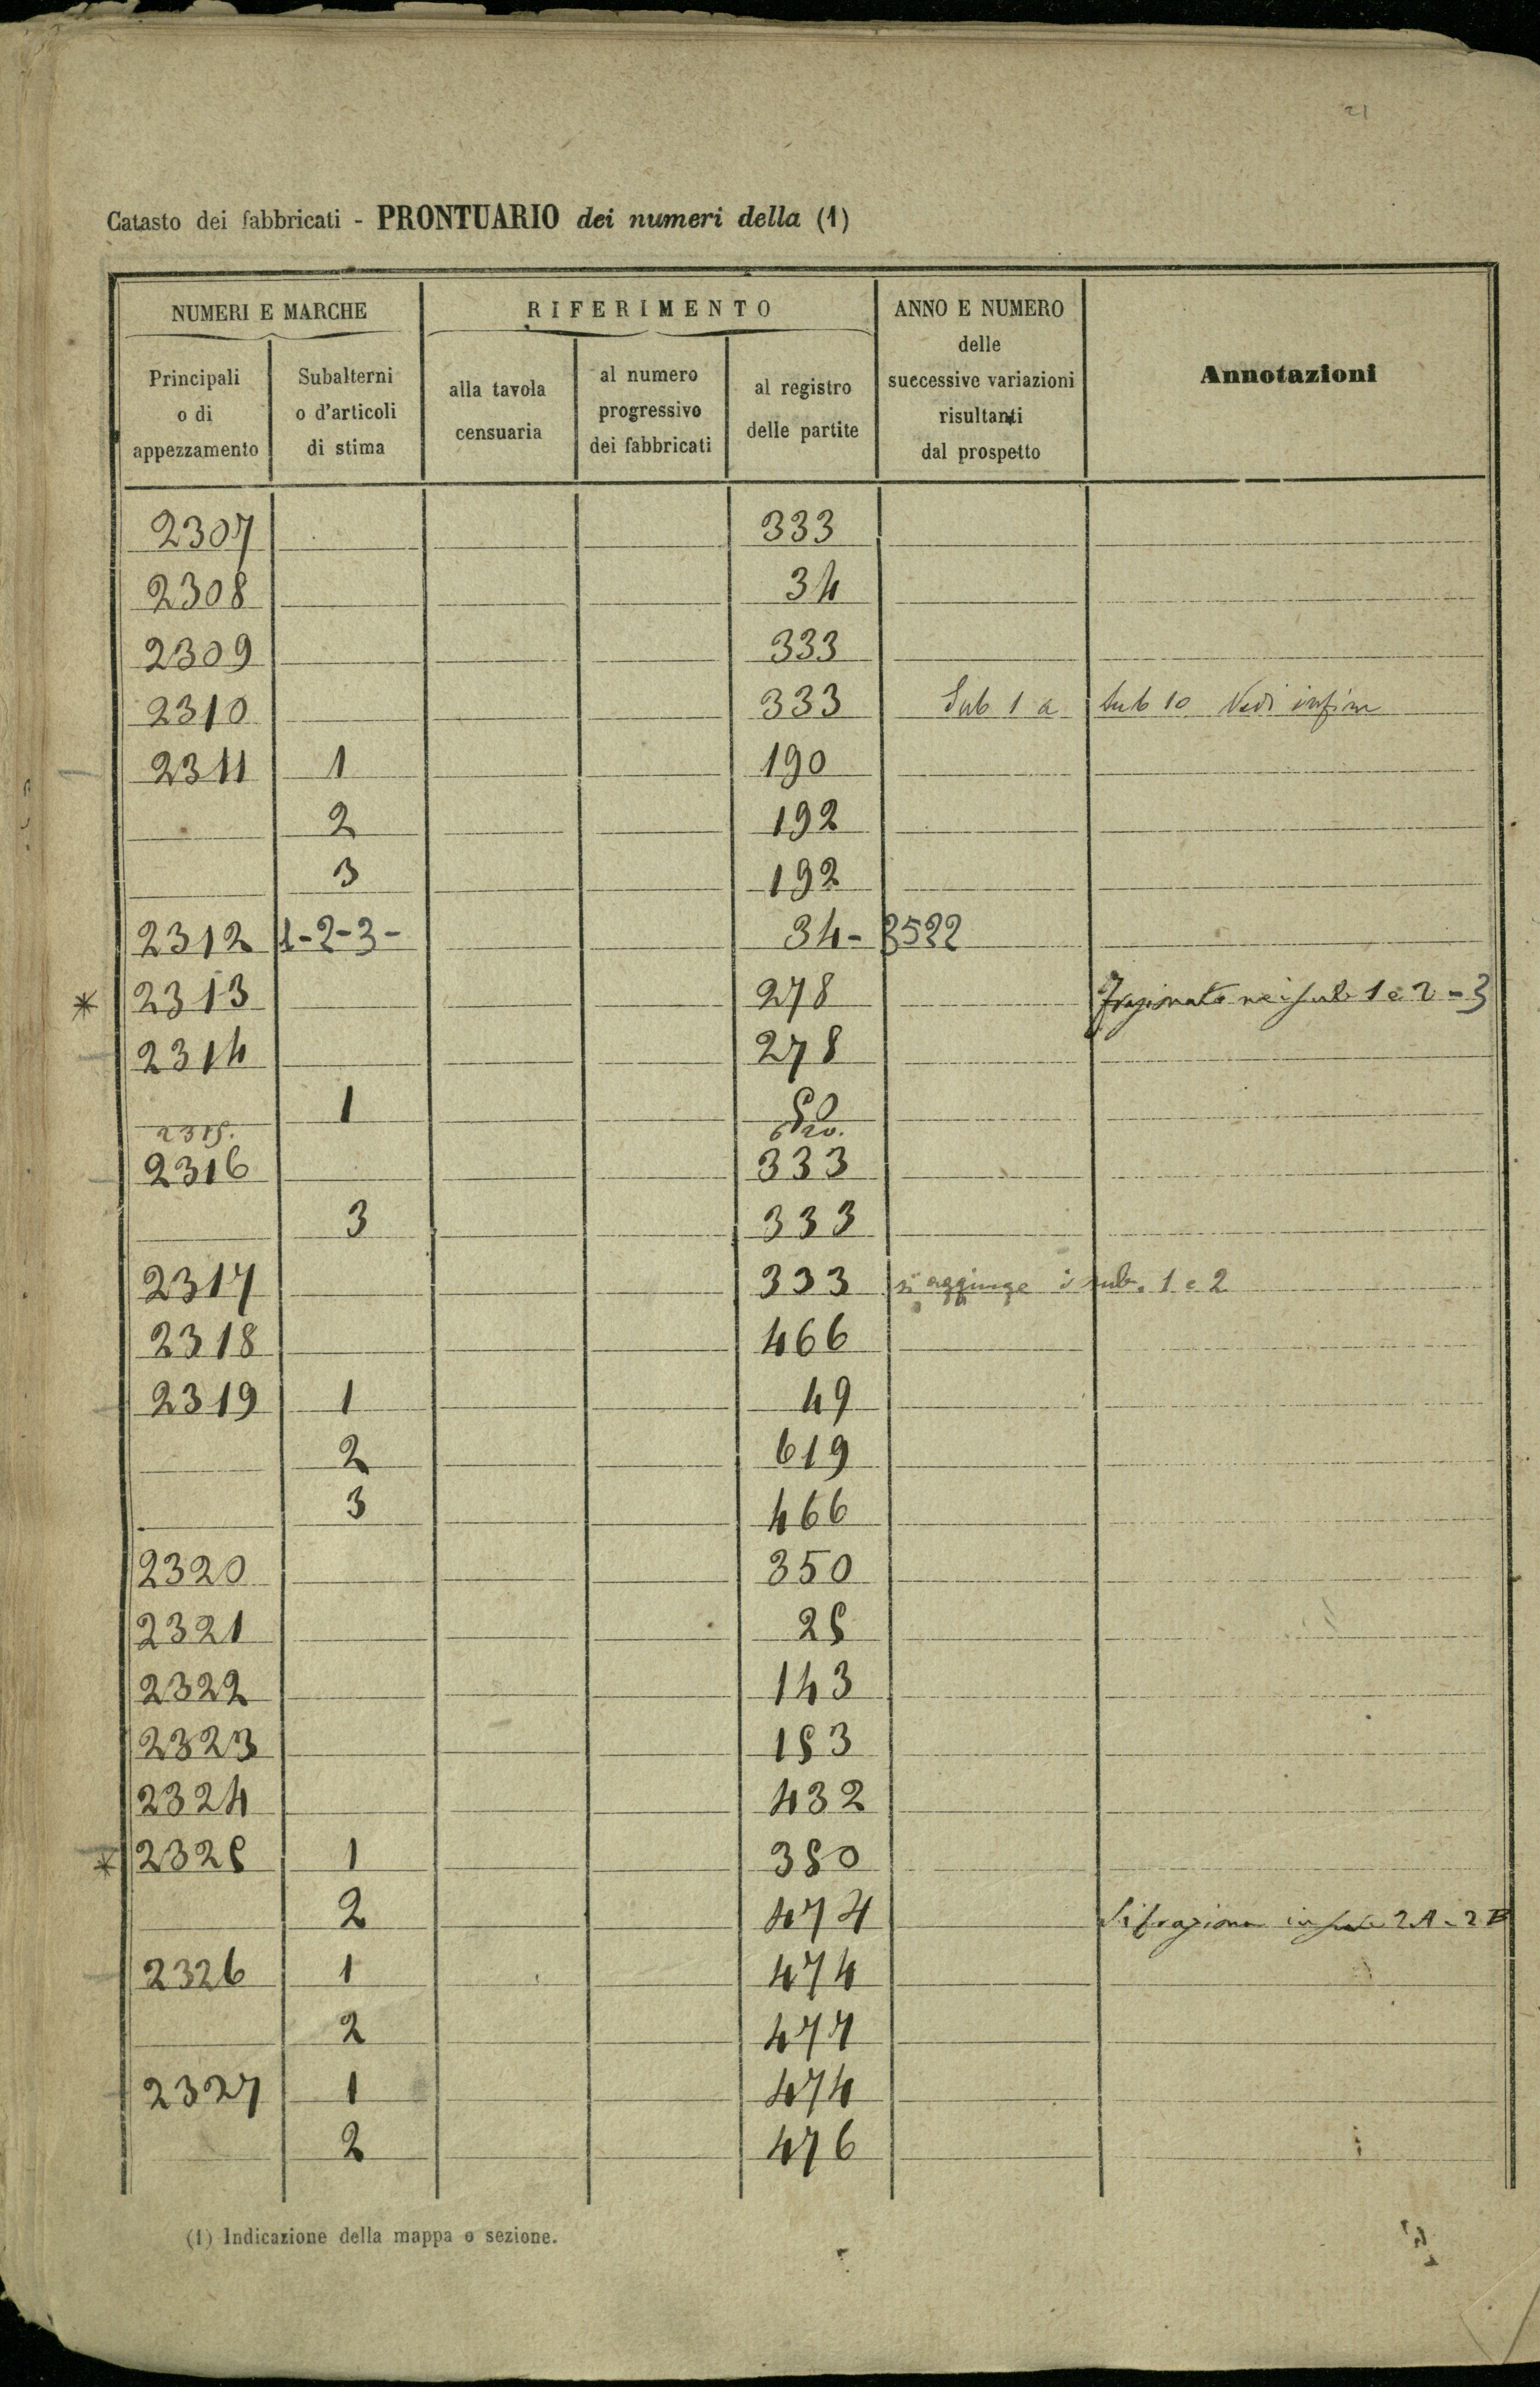 21
Catasto dei fabbricati - PRONTUARIO dei numeri della (1)
NUMERI E MARCHE
Principali o di appezzamento
Subalterni o d'articoli di stima
RIFERIMENTO
alla tavola censuaria
al numero progressivo dei fabbricati
al registro delle partite
ANNO E NUMERO delle successive variazioni risultanti dal prospetto
Annotazioni
2307 333
2308 34
2309 333
2310 333 Sub 1 a Sub 10 Vedi infine
2311 1 190
2 192
3 192
2312 1-2-3- 34- 3522
* 2313 278 Frazionato nei sub 1 e 2 - 3
2314 278
1 50
2315.
2316 333
3 333
2317 333 si aggiunge i sub. 1 e 2
2318 466
2319 1 49
2 619
3 466
2320 350
2321 25
2322 143
2323 153
2324 432
* 2325 1 350
2 474 Si fraziona in sub 2A - 2B
2326 1 474
2 477
2327 1 474
2 476
(1) Indicazione della mappa o sezione.